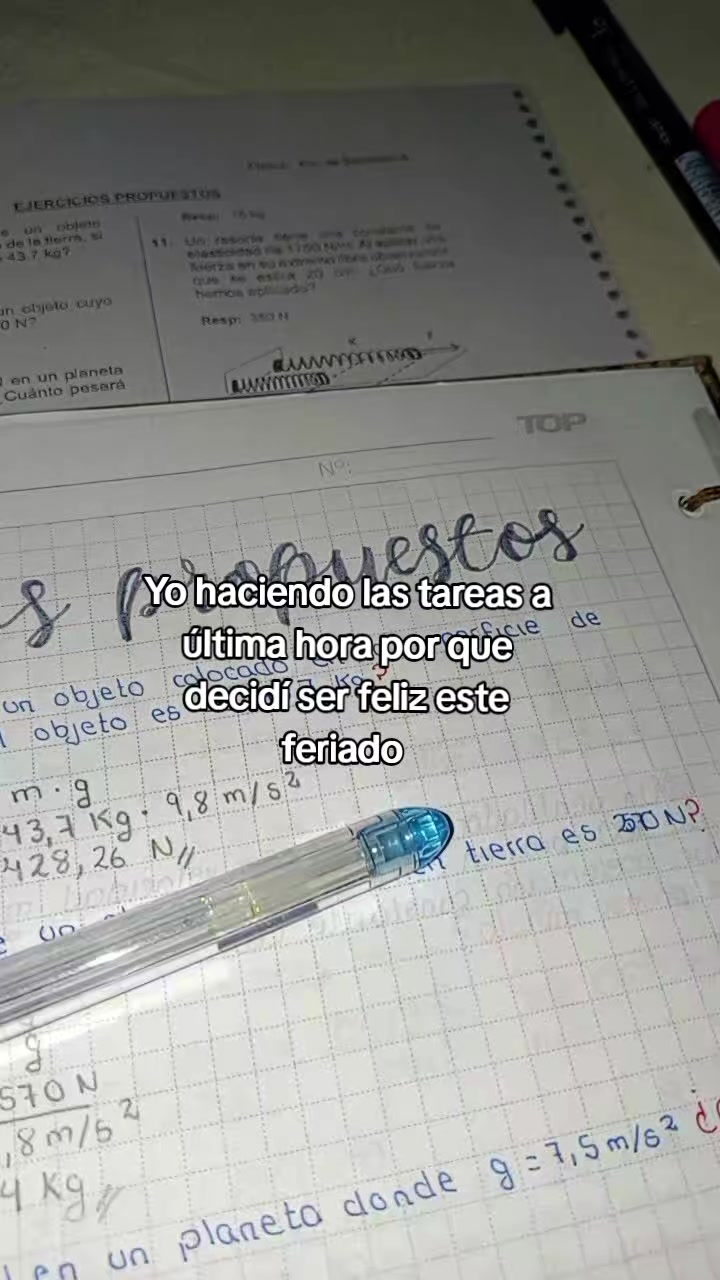 EJERCICIOS PROPUESTOS
un objeto
de la tierra, si
43.7 kg?
un objeto cuyo
0 N?
en un planeta
Cuánto pesará
11. Un resorte tiene una constante de
elasticidad de 1750 N/m. Al aplicar una
fuerza en su extremo libre observamos
que se estira 20 cm. ¿Qué fuerza
hemos aplicado?
Resp: 350 N
x F
TOP
Nº:
s propuestos
Yo haciendo las tareas a
última hora por que
decidí ser feliz este
feriado
un objeto colocado de
objeto es
m . g
43,7 Kg . 9,8 m/s²
428,26 N//
tierra es N?
un
g
570 N
,8 m/s²
4 Kg//
en un planeta donde g = 7,5 m/s²